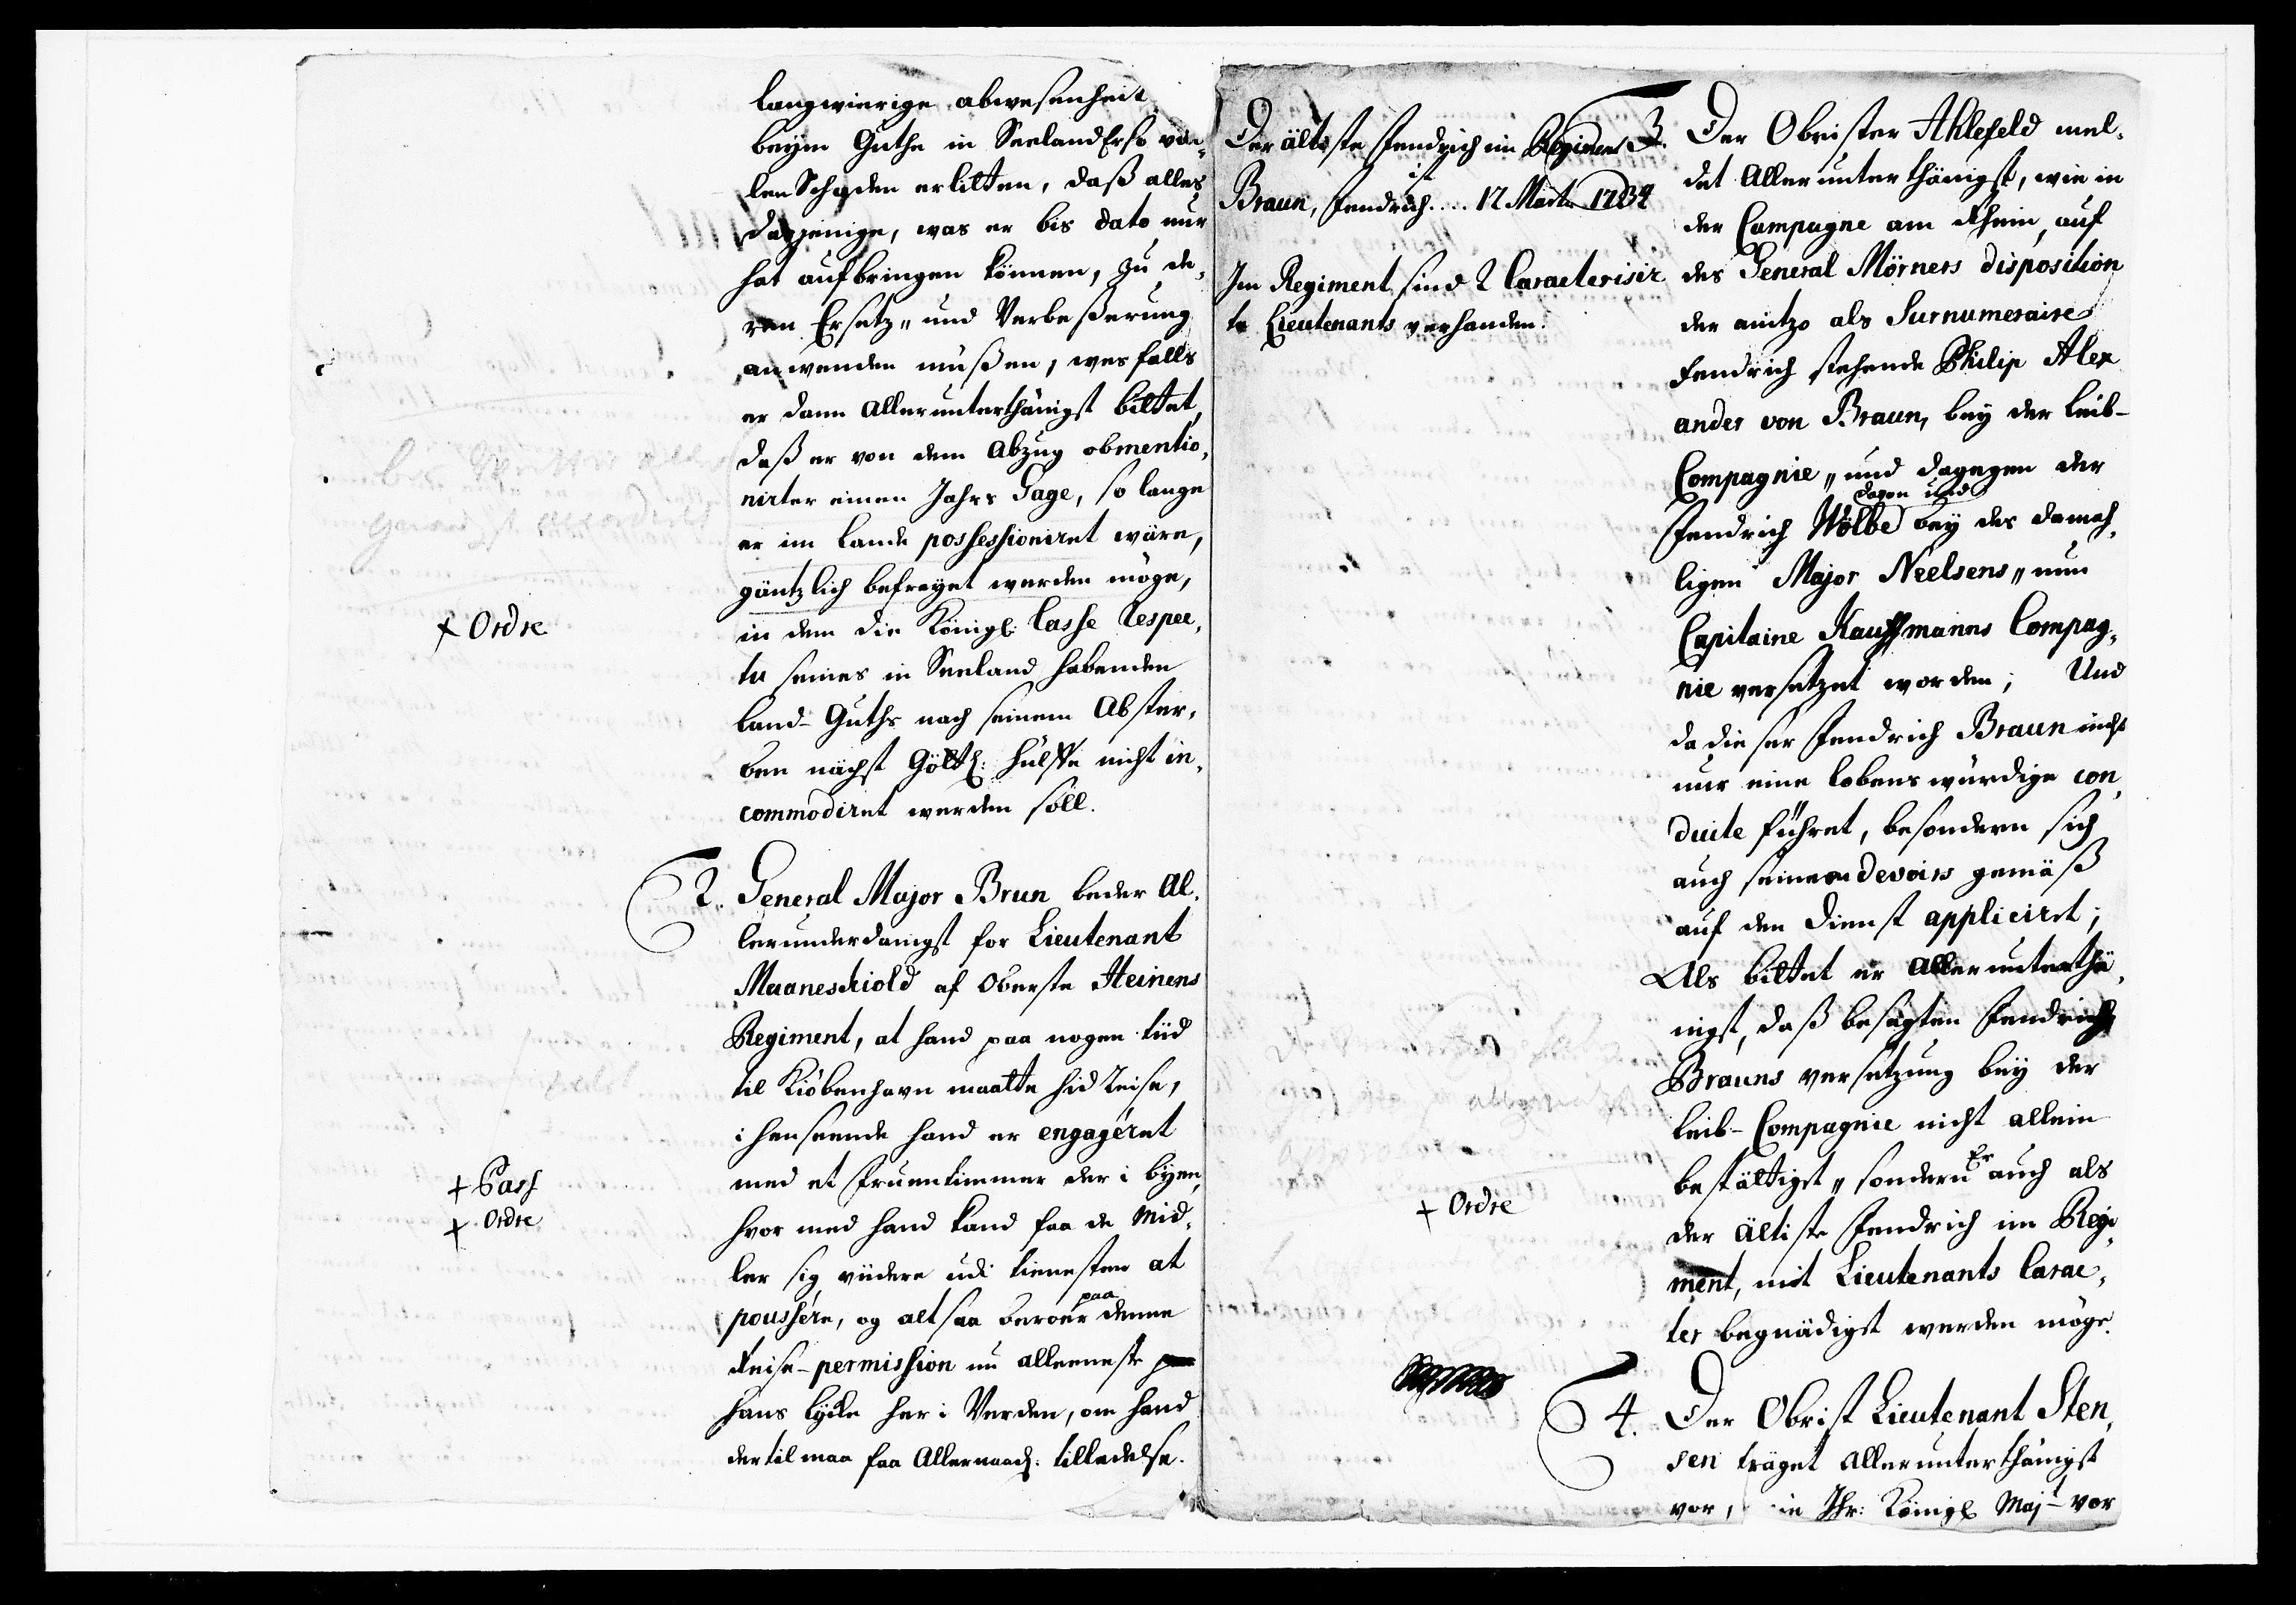 langwierige abwesenheit
beÿm Guthe in Seeland Erso vie-
len Schaden erlitten, daß alles
dasjenige, was er bis dato nur
hat aufbringen können, zu de-
ren Ersetz„ und Verbeßerung
anwenden müßen, wesfalls
er dann Allerunterthänigst bittet,
daß er von dem Abzug obmentio-
nirter einen Jahrs Gage, so lange
er im Lande possessioniret wäre,
gäntzlich befreyet werden möge,
in dem die Königl: Casse respec-
tu seines in Seeland habenden
Land-Guths nach seinem Abster-
ben nächst Göttl: hülffe nicht in-
commodiret werden soll.
+ Ordre
2. General Major Brun beder Al-
lerunderdanigst for Lieutenant
Maaneskiold af Oberste Heinens
Regiment, at hand paa nogen tiid
til Kiöbenhavn maatte hid reise,
i henseende hand er engagéret
med et Fruentimmer der i byen,
hvor med hand kand faa de Mid-
ler sig viidere udi tienesten at
pousséra, og altsaa beroer paa denne
Reise-permission nu alleeneste
hans lycke her i Verden, om hand
dertil maa faa Allernaad: tilladelse.
+ Pass
+ Ordre
Der ältiste Fendrich im Regiment ist
Braun, Fendrich .... 17 Martii 1734
Im Regiment sind 2 Caracterisir
te Lieutenants verhanden.
3. Der Obrister Ahlefeld mel-
det Allerunterthänigst, wie in
der Campagne am Rhein, auf
des General Mörners disposition
der anitzo als Surnumeraire
Fendrich stehende Philip Alex
ander von Braun, beÿ der Leib-
Compagnie„ und dagegen der
Fendrich Wölbe beÿ des damah-
ligen Major Neelsens„ nun
Capitaine Kauffmanns Compag-
nie versetzet worden; Und
da dieser Fendrich Braun nicht
nur eine lobenswürdige con-
duite führet, besondern sich
auch seinen devoirs gemäß
auf den Dienst appliciret;
Als bittet er Allerunterthä-
nigst, daß besagten Fendrich
Brauns versetzung beÿ der
Leib-Compagnie nicht allein
bestättiget„ sondern Er auch als
der ältiste Fendrich im Regi-
ment, mit Lieutenants Carac-
ter begnädigst werden möge.
+ Ordre
4. Der Obrist Lieutenant Sten-
sen träget Allerunterthänigst
vor, Ihr: Königl Majt vor